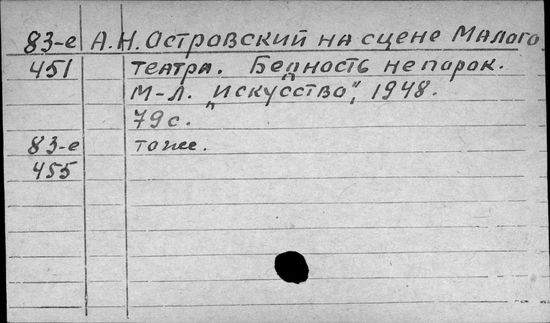 83-е А.Н. Островский на сцене Малого
451 театра. Бедность не порок.
М-Л. "Искусство", 1948.
79 с.
83-е то же.
455